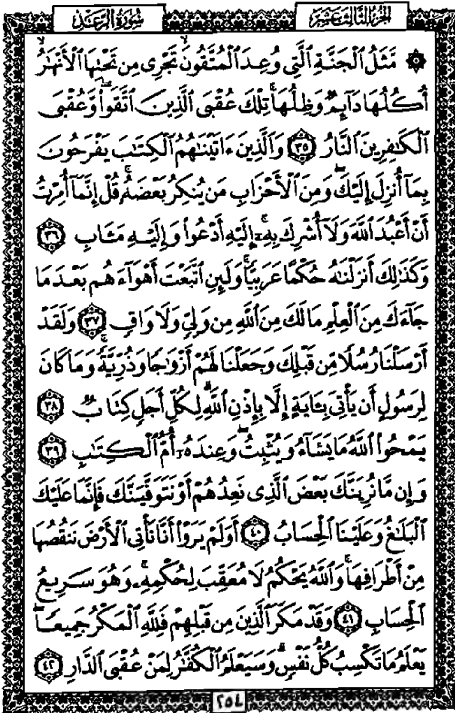 الجزء الثالث عشر
سورة الرعد
۞ مَّثَلُ ٱلْجَنَّةِ ٱلَّتِى وُعِدَ ٱلْمُتَّقُونَ تَجْرِى مِن تَحْتِهَا ٱلْأَنْهَٰرُ
أُكُلُهَا دَآئِمٌ وَظِلُّهَا تِلْكَ عُقْبَى ٱلَّذِينَ ٱتَّقَوا۟ وَّعُقْبَى
ٱلْكَٰفِرِينَ ٱلنَّارُ ٣٥ وَٱلَّذِينَ ءَاتَيْنَٰهُمُ ٱلْكِتَٰبَ يَفْرَحُونَ
بِمَآ أُنزِلَ إِلَيْكَ وَمِنَ ٱلْأَحْزَابِ مَن يُنكِرُ بَعْضَهُۥ قُلْ إِنَّمَآ أُمِرْتُ
أَنْ أَعْبُدَ ٱللَّهَ وَلَآ أُشْرِكَ بِهِۦٓ إِلَيْهِ أَدْعُوا۟ وَإِلَيْهِ مَـَٔابِ ٣٦
وَكَذَٰلِكَ أَنزَلْنَٰهُ حُكْمًا عَرَبِيًّا وَلَئِنِ ٱتَّبَعْتَ أَهْوَآءَهُم بَعْدَ مَا
جَآءَكَ مِنَ ٱلْعِلْمِ مَا لَكَ مِنَ ٱللَّهِ مِن وَلِىٍّ وَلَا وَاقٍ ٣٧ وَلَقَدْ
أَرْسَلْنَا رُسُلًا مِّن قَبْلِكَ وَجَعَلْنَا لَهُمْ أَزْوَٰجًا وَذُرِّيَّةً وَمَا كَانَ
لِرَسُولٍ أَن يَأْتِىَ بِـَٔايَةٍ إِلَّا بِإِذْنِ ٱللَّهِ لِكُلِّ أَجَلٍ كِتَابٌ ٣٨
يَمْحُوا۟ ٱللَّهُ مَا يَشَآءُ وَيُثْبِتُ وَعِندَهُۥٓ أُمُّ ٱلْكِتَٰبِ ٣٩
وَإِن مَّا نُرِيَنَّكَ بَعْضَ ٱلَّذِى نَعِدُهُمْ أَوْ نَتَوَفَّيَنَّكَ فَإِنَّمَا عَلَيْكَ
ٱلْبَلَٰغُ وَعَلَيْنَا ٱلْحِسَابُ ٤٠ أَوَلَمْ يَرَوْا۟ أَنَّا نَأْتِى ٱلْأَرْضَ نَنقُصُهَا
مِنْ أَطْرَافِهَا وَٱللَّهُ يَحْكُمُ لَا مُعَقِّبَ لِحُكْمِهِۦ وَهُوَ سَرِيعُ
ٱلْحِسَابِ ٤١ وَقَدْ مَكَرَ ٱلَّذِينَ مِن قَبْلِهِمْ فَلِلَّهِ ٱلْمَكْرُ جَمِيعًا
يَعْلَمُ مَا تَكْسِبُ كُلُّ نَفْسٍ وَسَيَعْلَمُ ٱلْكُفَّٰرُ لِمَنْ عُقْبَى ٱلدَّارِ ٤٢
٢٥٤